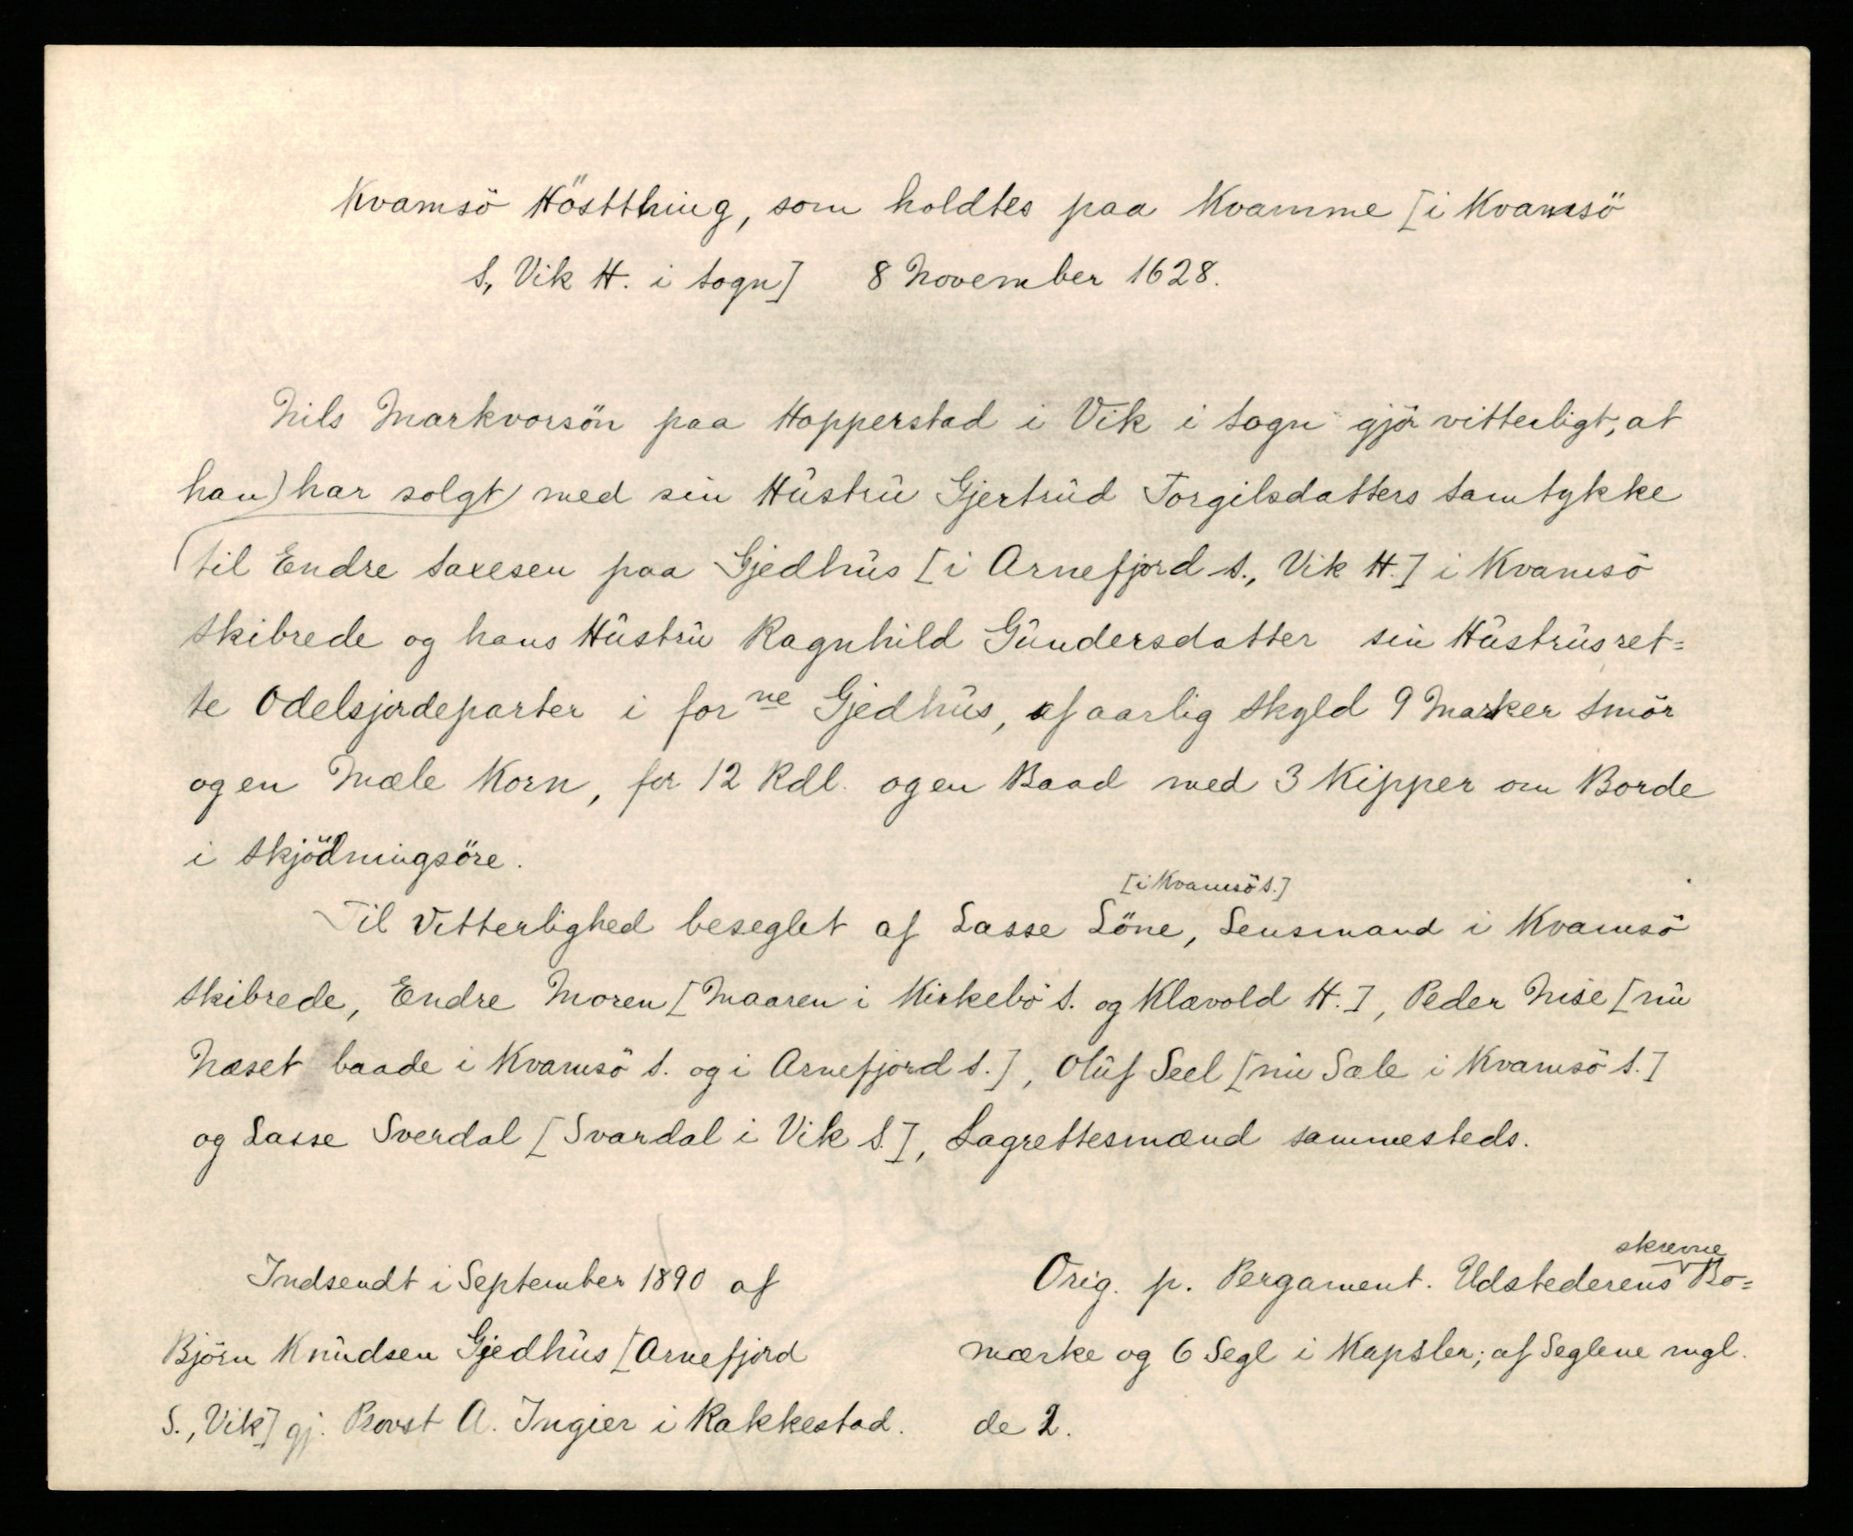 Kvamsö Höstthing, som holdtes paa Kvamme [i Kvamsö
S., Vik H. i Sogn] 8 November 1628.
Nils Markvorsön paa Hopperstad i Vik i Sogn gjör vitterligt, at
han) har solgt) med sin Hûstrû Gjertrûd Torgilsdatters Samtykke
(til Endre Saxesen paa Gjedhûs [i Arnefjord S., Vik H.] i Kvamsö
Skibrede og hans Hûstrû Ragnhild Gûndersdatter sin Hûstrûs ret=
te Odelsjordeparter i forne Gjedhûs, af aarlig Skyld 9 Marker Smör
og en Mæle Korn, for 12 Rdl. og en Baad med 3 Kipper om Borde
i Skjödningsöre.
[i Kvamsö S.]
Til Vitterlighed beseglet af Lasse Löne, Lensmand i Kvamsö
Skibrede, Endre Moren [Maaren i Kirkebö S. og Klævold H.], Peder Nise [nû
Næset baade i Kvamsö S. og i Arnefjord S.], Olûf Seel [nû Sæle i Kvamsö S.]
og Lasse Sverdal [Svardal i Vik S.], Lagrettesmænd sammesteds.
Indsendt i September 1890 af
Björn Knûdsen Gjedhûs [Arnefjord
S., Vik] gj. Provst A. Ingier i Rakkestad.
skrevne
Orig. p. Pergament. Udstederens Bo=
mærke og 6 Segl i Kapsler; af Seglene mgl.
de 2.